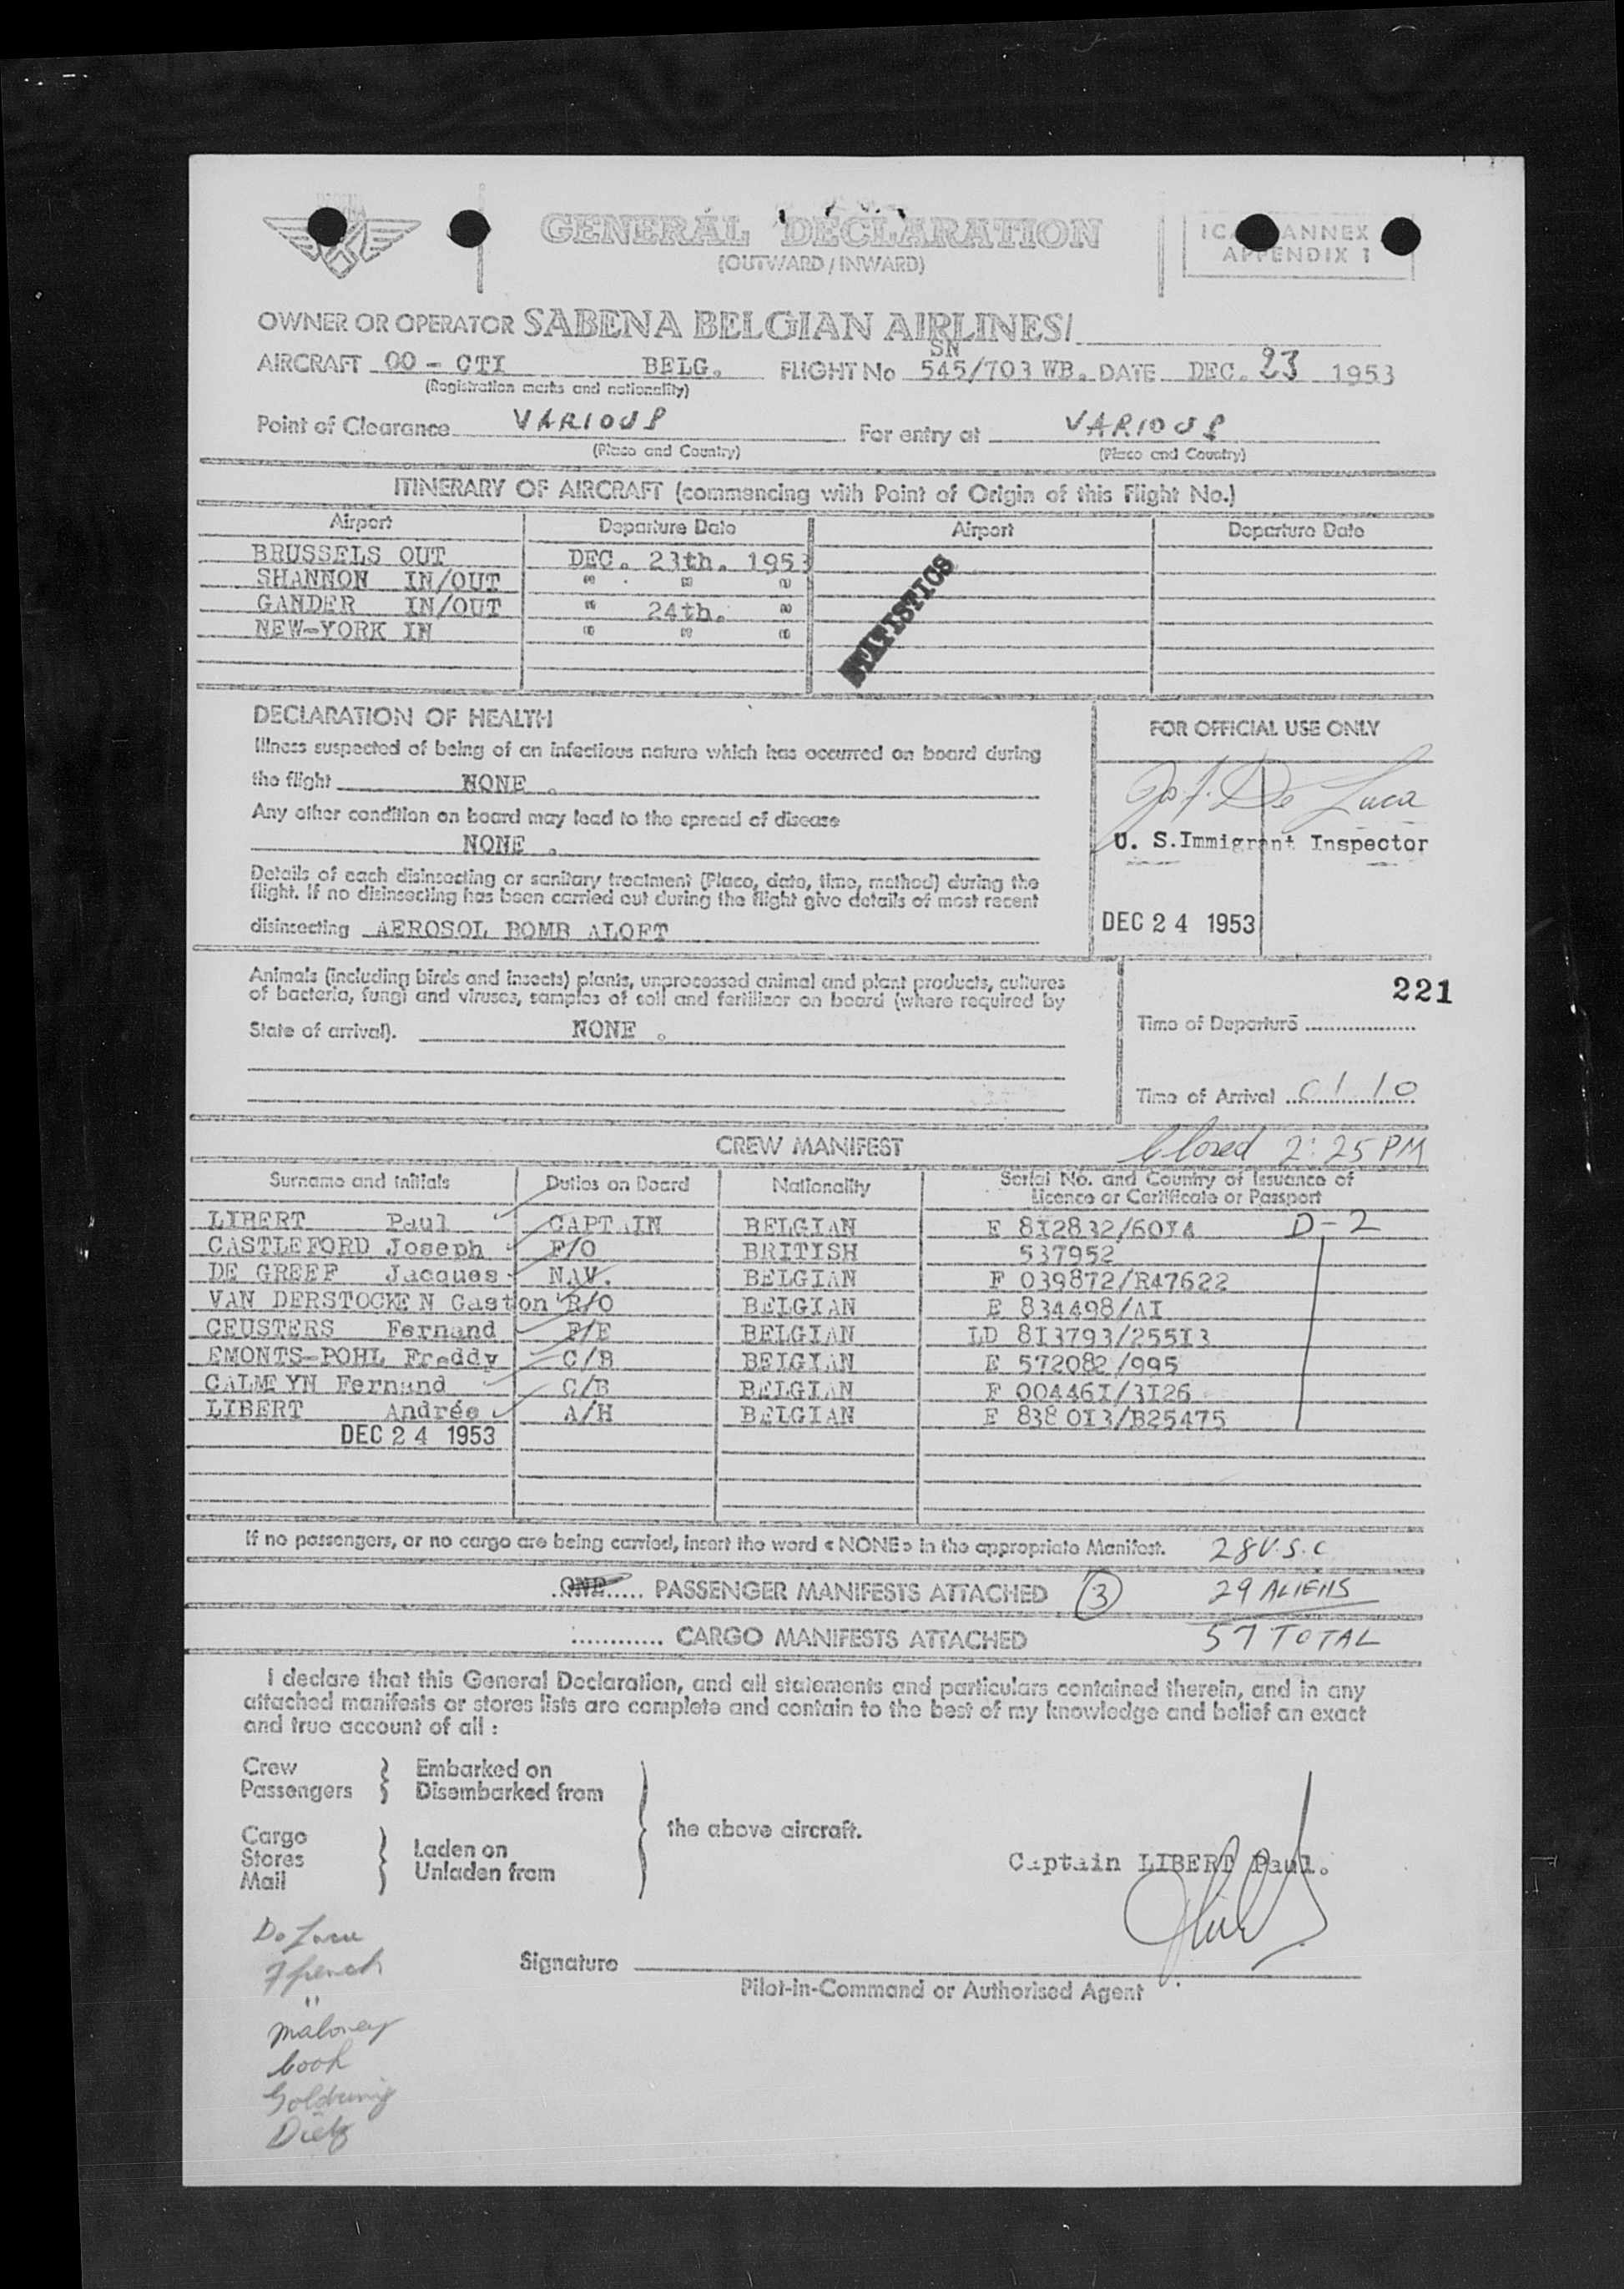 GENERAL DECLARATION
(OUTWARD / INWARD)
ANNEX
APPENDIX 1
OWNER OR OPERATOR SABENA BELGIAN AIRLINES/
SN
AIRCRAFT OO - CTI BELG. FLIGHT No 545/703 WB. DATE DEC. 23 1953
(Registration marks and nationality)
Point of Clearance VARIOUS For entry at VARIOUS
(Place and Country) (Place and Country)
ITINERARY OF AIRCRAFT (commencing with Point of Origin of this Flight No.)
Airport Departure Date Airport Departure Date
BRUSSELS OUT DEC. 23th. 1953
SHANNON IN/OUT " . " "
GANDER IN/OUT " 24th. "
NEW-YORK IN " " "
STATISTICS
DECLARATION OF HEALTH
FOR OFFICIAL USE ONLY
Illness suspected of being of an infectious nature which has occurred on board during
the flight NONE .
Any other condition on board may lead to the spread of disease
NONE .
De Luca
U. S. Immigrant Inspector
Details of each disinsecting or sanitary treatment (Place, date, time, method) during the
flight. If no disinsecting has been carried out during the flight give details of most recent
disinsecting AEROSOL BOMB ALOFT
DEC 24 1953
Animals (including birds and insects) plants, unprocessed animal and plant products, cultures
of bacteria, fungi and viruses, samples of soil and fertilizer on board (where required by
State of arrival). NONE .
221
Time of Departure
Time of Arrival 01 10
CREW MANIFEST
Closed 2:25 PM
Surname and Initials Duties on Board Nationality Serial No. and Country of Issuance of
Licence or Certificate or Passport
LIBERT Paul CAPTAIN BELGIAN E 812832/60I4 D-2
CASTLEFORD Joseph F/O BRITISH 537952
DE GREEF Jacques NAV. BELGIAN F 039872/R47622
VAN DERSTOCKEN Gaston R/O BELGIAN E 834498/AI
CEUSTERS Fernand F/E BELGIAN LD 8I3793/255I3
EMONTS-POHL Freddy C/B BELGIAN E 572082/995
CALMEYN Fernand C/B BELGIAN F 00446I/3I26
LIBERT Andrée A/H BELGIAN E 838 0I3/B25475
DEC 24 1953
If no passengers, or no cargo are being carried, insert the word « NONE » in the appropriate Manifest. 28 U.S.C
ONE PASSENGER MANIFESTS ATTACHED 3 29 ALIENS
CARGO MANIFESTS ATTACHED 57 TOTAL
I declare that this General Declaration, and all statements and particulars contained therein, and in any
attached manifests or stores lists are complete and contain to the best of my knowledge and belief an exact
and true account of all :
Crew Embarked on
Passengers Disembarked from
the above aircraft.
Cargo
Stores Laden on
Mail Unladen from
Captain LIBERT Paul.
De Luca
Ffrench
"
Maloney
Cook
Goldring
Dietz
Signature
Pilot-in-Command or Authorised Agent